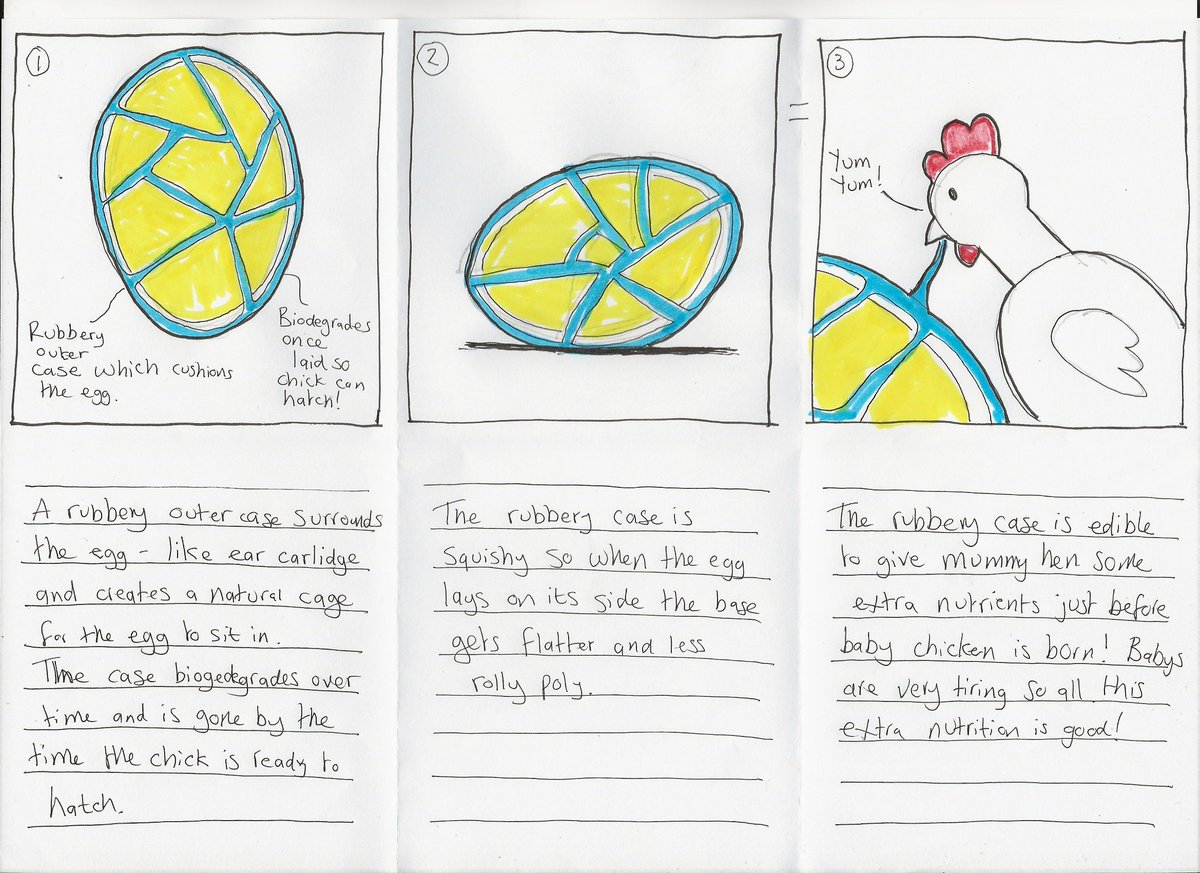 1
Rubbery
outer
case which cushions
the egg.
Biodegrades
once
laid so
chick can
hatch!
A rubbery outer case surrounds
the egg - like ear carlidge
and creates a natural cage
for the egg to sit in.
The case biogedegrades over
time and is gone by the
time the chick is ready to
hatch.
2
The rubbery case is
squishy so when the egg
lays on its side the base
gets flatter and less
rolly poly.
=
3
Yum
Yum!
The rubbery case is edible
to give mummy hen some
extra nutrients just before
baby chicken is born! Babys
are very tiring so all this
extra nutrition is good!